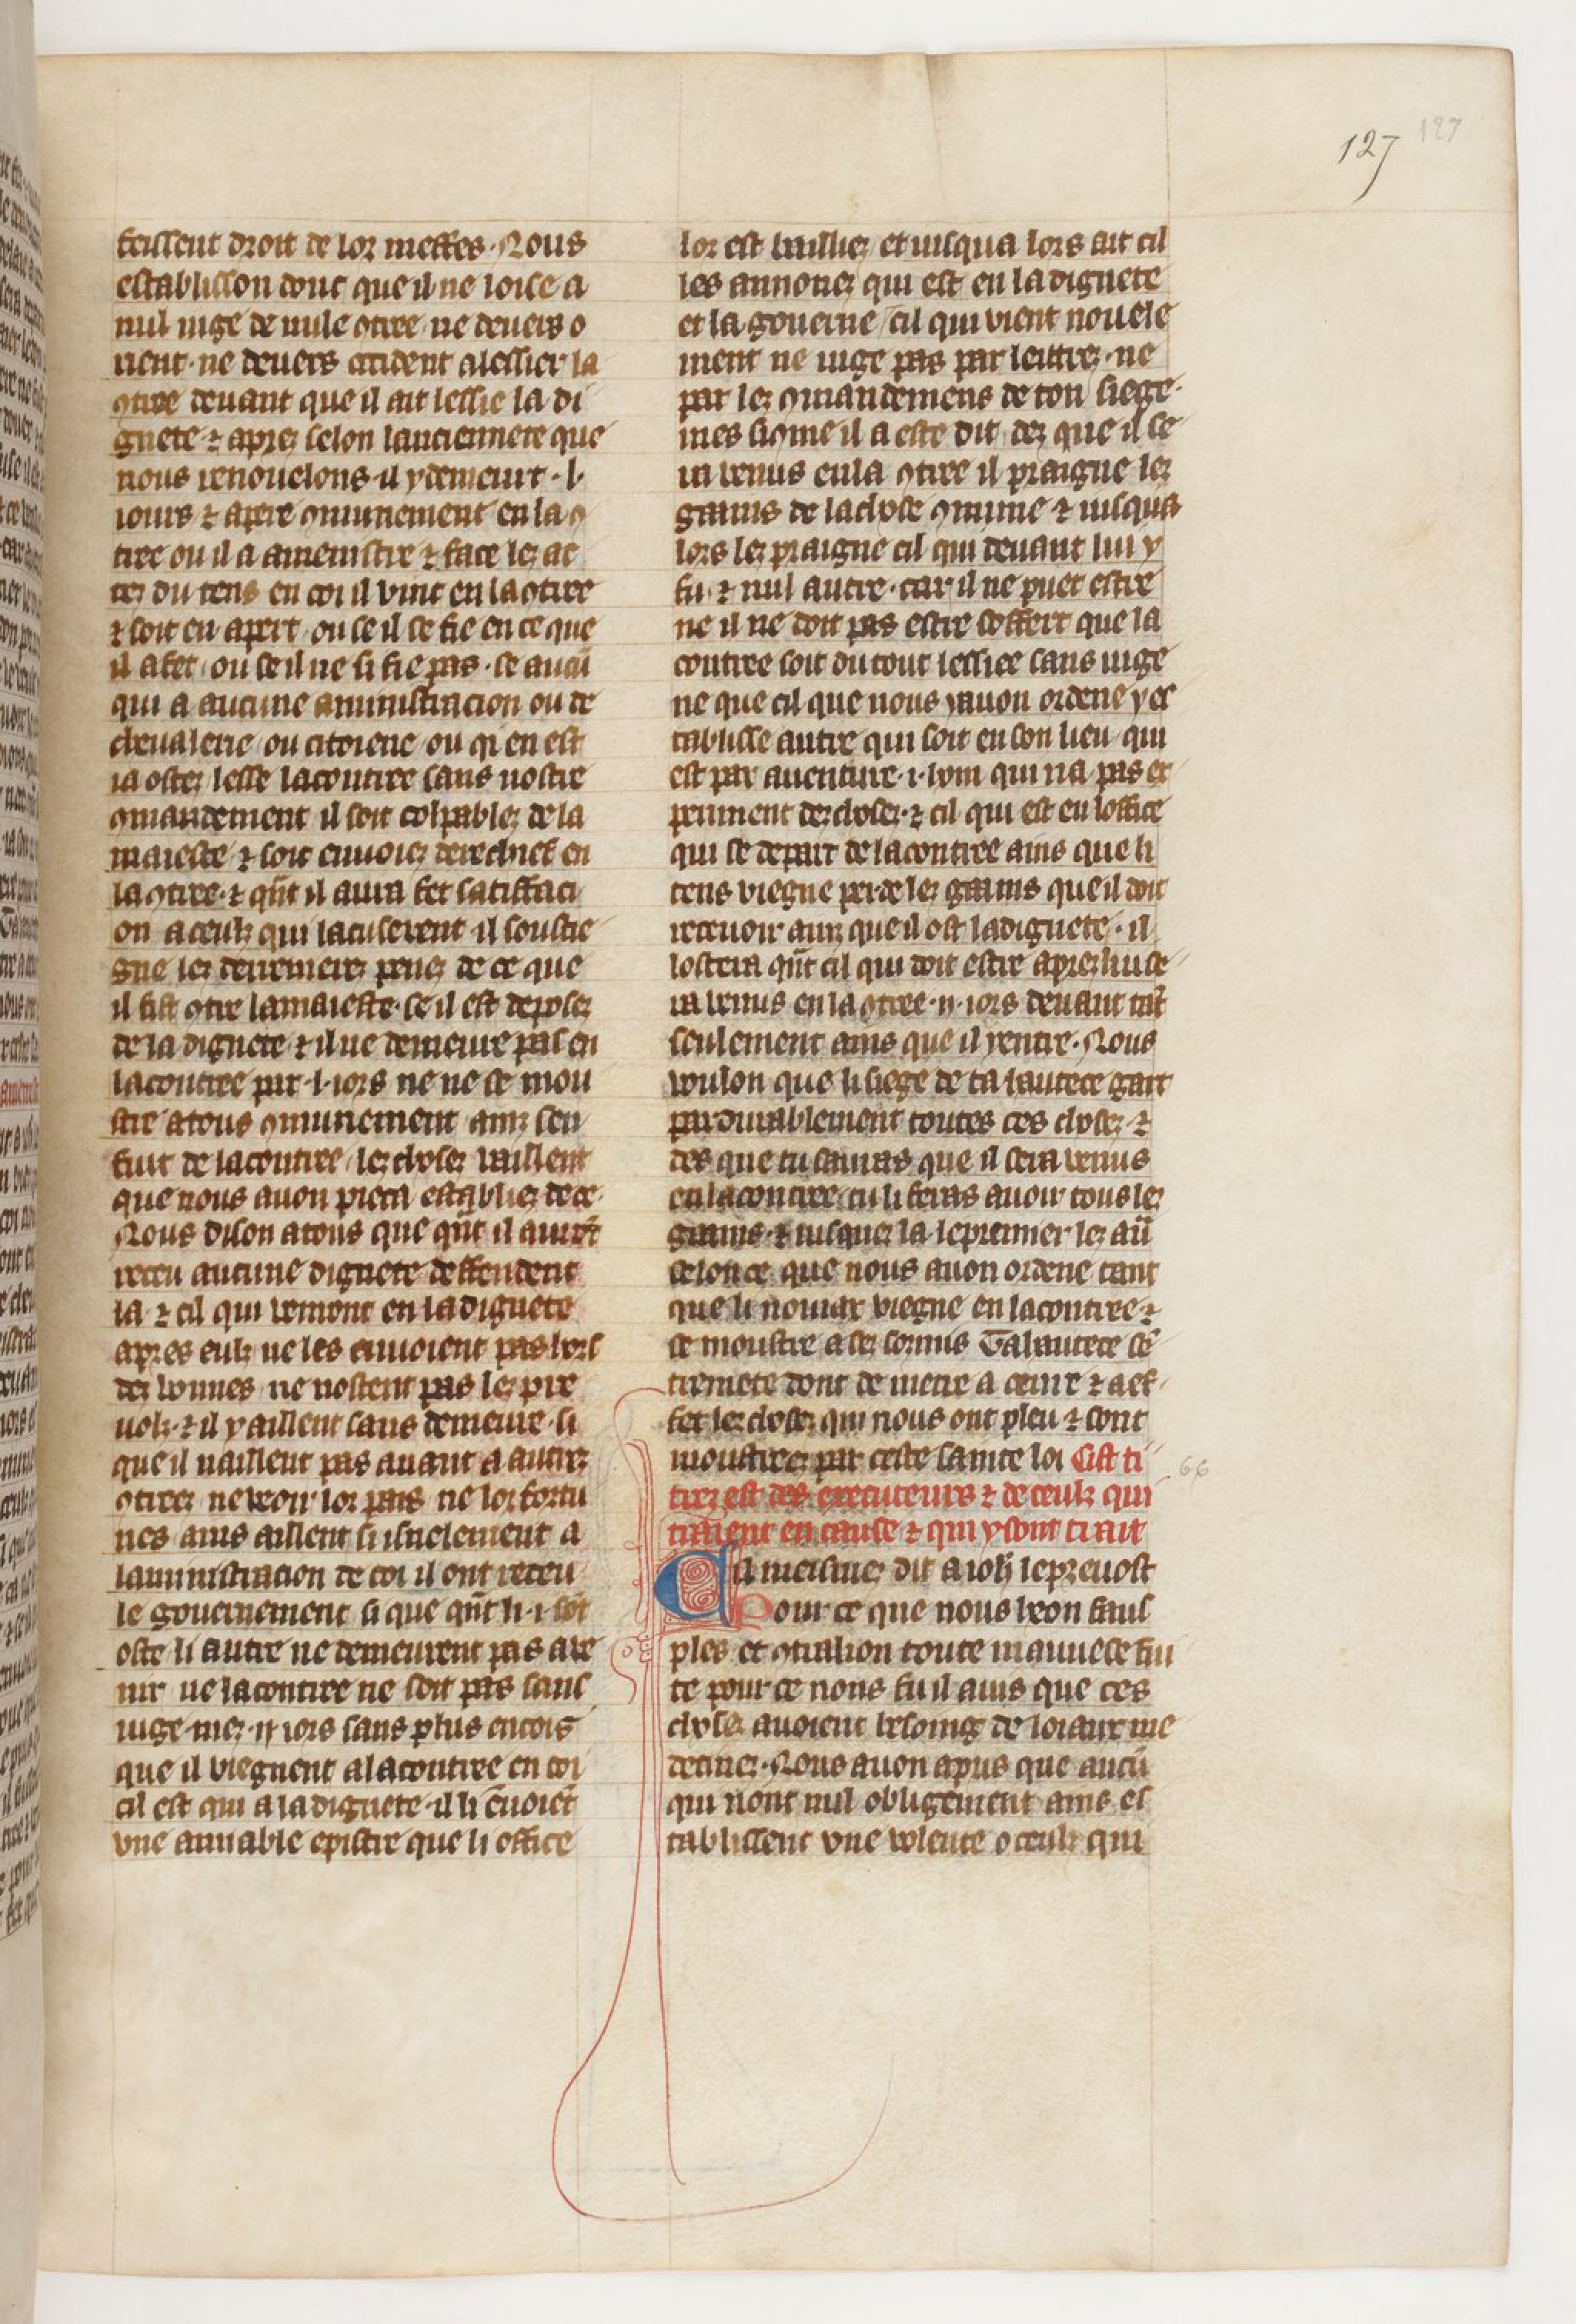 127 127
feissent droit de lor meffes. Nous
establisson donc que il ne loise a
nul iuge de nule ꝯtree ne deuers o
rient. ne deuers occident a lessier la
ꝯtree deuant que il ait lessie la di
gnete ⁊ aprez selon lanciennete que
nous renouelons il y demeurt .l.
iours ⁊ apere ꝯmunement en la ꝯ
tree ou il a amenistre ⁊ face lez ac
tez du tens en coi il vint en la ꝯtree
⁊ soit en apert ou se il se fie en ce que
il a fet. ou se il ne si fie pas. se aucū
qui a aucune amministracion ou de
cheualerie ou citoiene ou qi en est
ia ostez lesse la contree sans nostre
ꝯmandement il soit colpablez de la
maieste ⁊ soit enuoiez derechief en
la ꝯtree. ⁊ qn̄t il aura fet satiffaci
on a ceulz qui lacuserent il soustie
gne lez derrenierez penez de ce que
il fist ꝯtre la maieste. se il est deposez
de la dignete ⁊ il ne demeure pas en
la contree par .l. iors ne ne se mou
stre a tous ꝯmunement ainz sen
fuit de la contree lez chosez vaillent
que nous auon pieca establiez de ce.
Nous dison a tous que qn̄t il aurōt
receu aucune dignete deffendent
la ⁊ cil qui vemont en la dignete
apres eulz ne les enuoient pas hors
dez bonnes ne nostent pas lez pre
uolz. ⁊ il y aillent sans demeure si
que il naillent pas auant a autrez
ꝯtreez ne veoir lor pais ne lor fortu
nes ains aillent si isnelement a
lamministracion de coi il ont receu
le gouernement si que qn̄t li .i. sōt
oste li autre ne demeurent pas a ve
nir ne la contree ne soit pas sans
iuge mez .ii. iors sans plus encois
que il viegnent a la contree en coi
cil est qui a la dignete il li ēuoiet
vne amiable epistre que li office
lor est bailliez et iusqua lors ait cil
les annonez qui est en la dignete
et la gouerne cil qui vient nouele
ment ne iuge pas par lettrez. ne
par lez ꝯmandemens de ton siege.
mes si ꝯme il a este dit dez que il se
ra venus en la ꝯtree il praigne lez
gaains de la chose ꝯmune ⁊ iusqua
lors lez praigne cil qui deuant lui y
fu ⁊ nul autre. car il ne puet estre
ne il ne doit pas estre soffert que la
contree soit du tout lessiee sans iuge
ne que cil que nous y auon ordene y es
tablisse autre qui soit en son lieu qui
est par auenture .i. hom qui na pas ex
periment dez chosez. ⁊ cil qui est en loffice
qui se depart de la contree ains que li
tens viegne perde lez gaains que il doit
receuoir ainz que il ost la dignete. il
lostera qn̄t cil qui doit estre aprez lui se
ra venus en la ꝯtree .ii. iors deuant tāt
seulement ains que il y entre. Nous
voulon que li siege de ta hautece gart
pardurablement toutes ces chosez ⁊
des que tu sauras que il sera venus
en la contree tu li feras auoir tous lez
gaains. ⁊ iusquez la le premier lez aū
selon ce que nous auon ordene tant
que li nouiax viegne en la contree ⁊
se moustre a sez sormis Ta hautece se
tremete dont de metre a oeure ⁊ a ef
fet lez chosez qui nous ont pleu ⁊ sont
moustreez par ceste sainte loi Cist ti
trez est des executeurs ⁊ de ceulz qui
traient en cause ⁊ qui y sont trait 66
Cil meismez dit a ioh̄ le preuost
Pour ce que nous heon faus
ples et ꝯtralion toute mauuese fui
te pour ce nous fu il auis que ces
chosez auoient besoing de loiaux me
decinez. Nous auon apris que aucū
qui nont nul obligement ains es
tablissent vne volente o ceulz qui